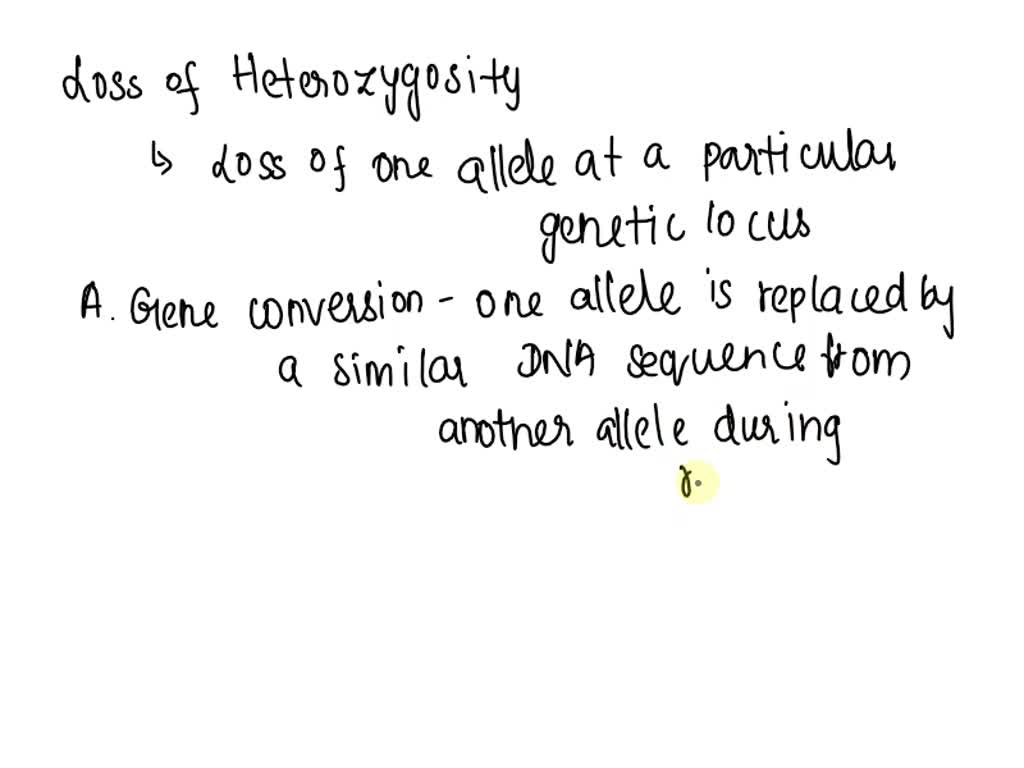 Loss of Heterozygosity
↳ Loss of one allele at a particular
genetic locus
A. Gene conversion - one allele is replaced by
a similar DNA sequence from
another allele during
r